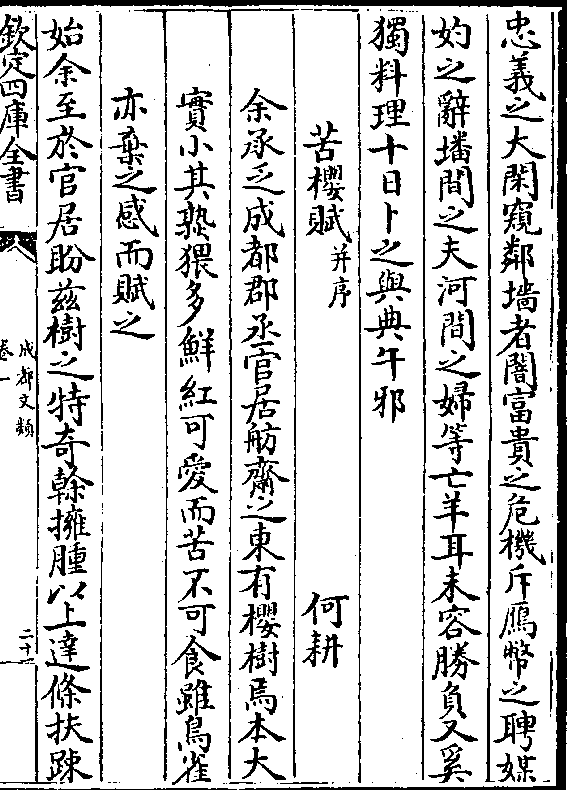 忠義之大閑窺鄰墻者闇富貴之危機斥鴈幣之聘媒
妁之辭墦間之夫河間之婦等亡羊耳未容勝負又奚
獨料理十日卜之與典午邪
苦櫻賦并序 何耕
余承乏成都郡丞官居舫齋之東有櫻樹焉本大
實小其熟猥多鮮紅可愛而苦不可食雖鳥雀
亦棄之感而賦之
始余至於官居盼茲樹之特奇榦擁腫以上達條扶踈
欽定四庫全書
成都文類
卷一
二十一